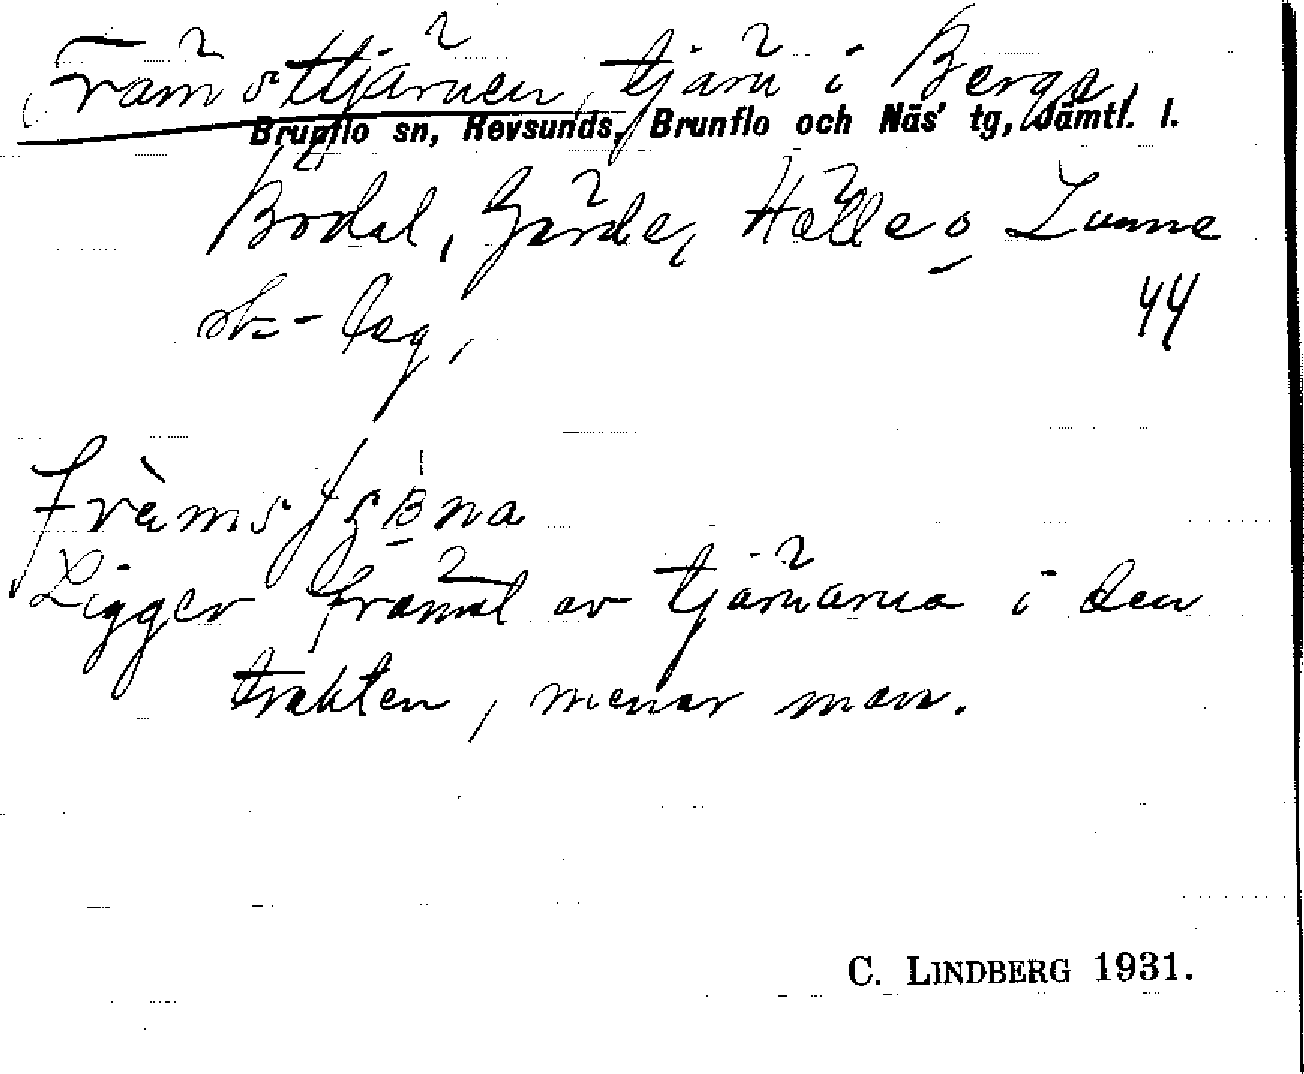 Främsttjärnen, tjärn i Berge,
Brunflo sn, Revsunds, Brunflo och Näs' tg, Jämtl. l.
Bodal, Gärde, Hälle o Lunne
44
Ligger främst av tjärnarna i den
trakten, menar man.
C. LINDBERG 1931.